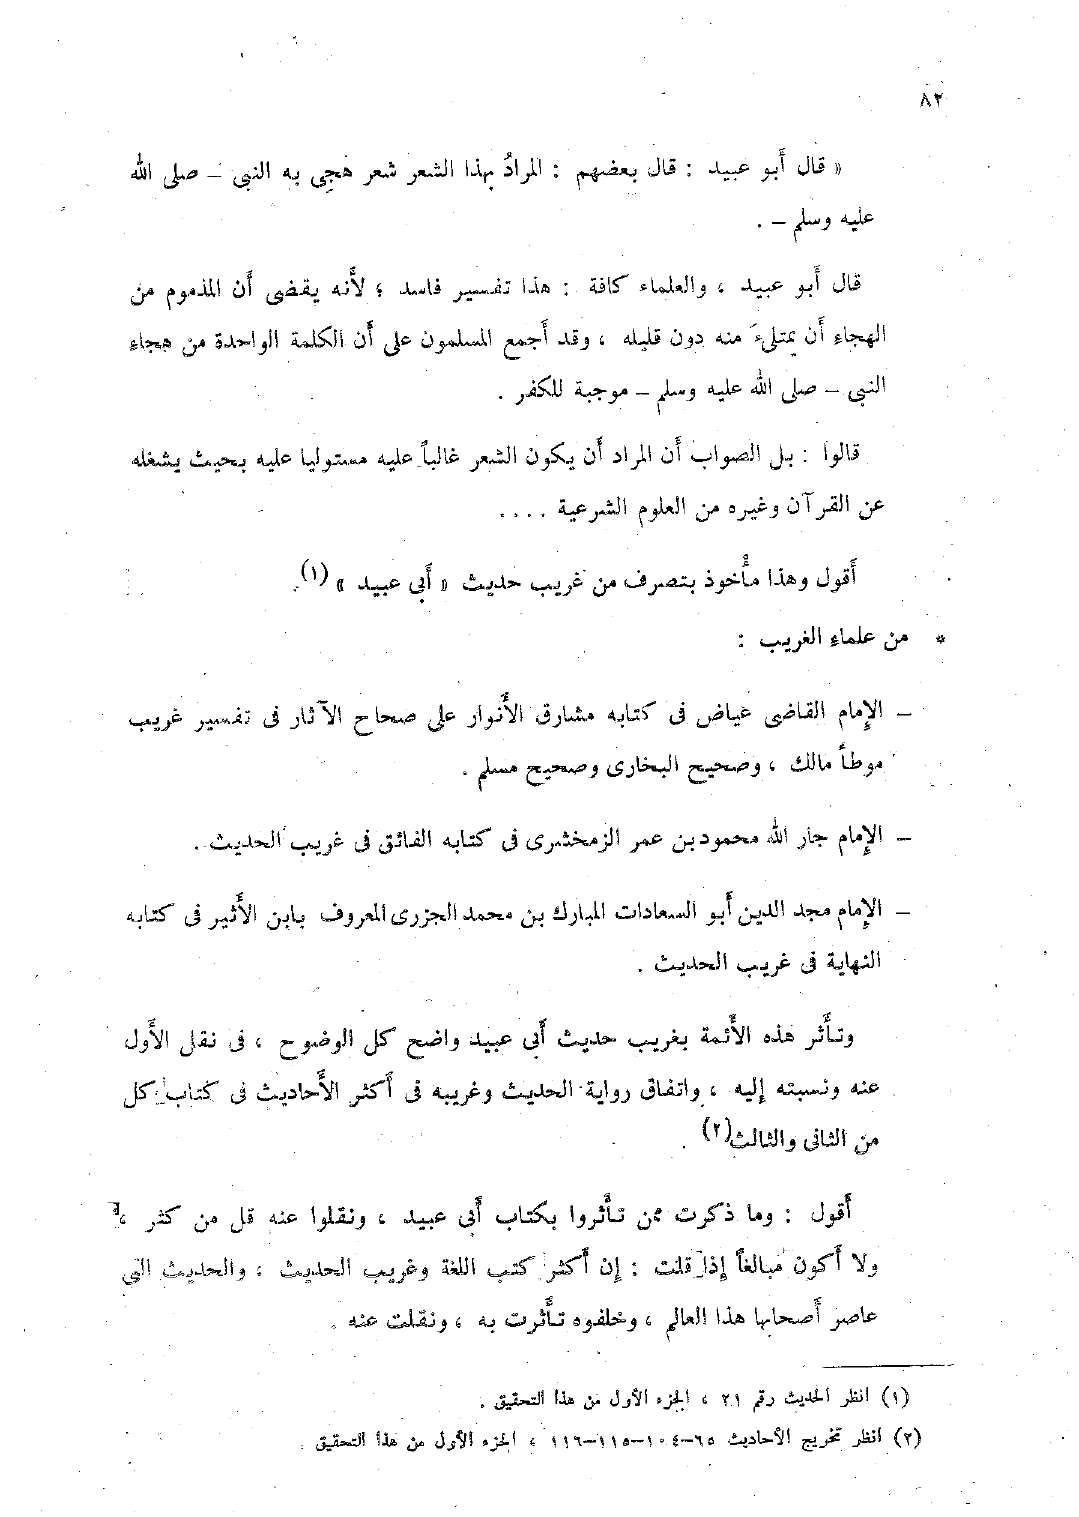 ٨٢
« قال أبو عبيد : قال بعضهم : المرادُ بهذا الشعر شعر هجِى به النبى – صلى الله
عليه وسلم – .
قال أبو عبيد ، والعلماء كافة : هذا تفسير فاسد ؛ لأنه يقضى أن المذموم من
الهجاء أن يمتلىءَ منه دون قليله ، وقد أجمع المسلمون على أن الكلمة الواحدة من هجاء
النبى – صلى الله عليه وسلم – موجبة للكفر .
قالوا : بل الصواب أن المراد أن يكون الشعر غالباً عليه مستوليا عليه بحيث يشغله
عن القرآن وغيره من العلوم الشرعية ....
أقول وهذا مأخوذ بتصرف من غريب حديث « أبى عبيد » (١).
* من علماء الغريب :
– الإمام القاضى عياض فى كتابه مشارق الأنوار على صحاح الآثار فى تفسير غريب
موطأ مالك ، وصحيح البخارى وصحيح مسلم .
– الإمام جار الله محمود بن عمر الزمخشرى فى كتابه الفائق فى غريب الحديث .
– الإمام مجد الدين أبو السعادات المبارك بن محمد الجزرى المعروف بابن الأثير فى كتابه
النهاية فى غريب الحديث .
وتأثر هذه الأئمة بغريب حديث أبى عبيد واضح كل الوضوح ، فى نقل الأول
عنه ونسبته إليه ، واتفاق رواية الحديث وغريبه فى أكثر الأحاديث فى كتاب كل
من الثانى والثالث(٢) .
أقول : وما ذكرت ممن تأثروا بكتاب أبى عبيد ، ونقلوا عنه قل من كثر ،
ولا أكون مبالغاً إذا قلت : إن أكثر كتب اللغة وغريب الحديث ، والحديث التى
عاصر أصحابها هذا العالم ، وخلفوه تأثرت به ، ونقلت عنه .
(١) انظر الحديث رقم ٢١ ، الجزء الأول من هذا التحقيق .
(٢) انظر تخريج الأحاديث ٦٥–١٠٤–١١٥–١١٦ ، الجزء الأول من هذا التحقيق .